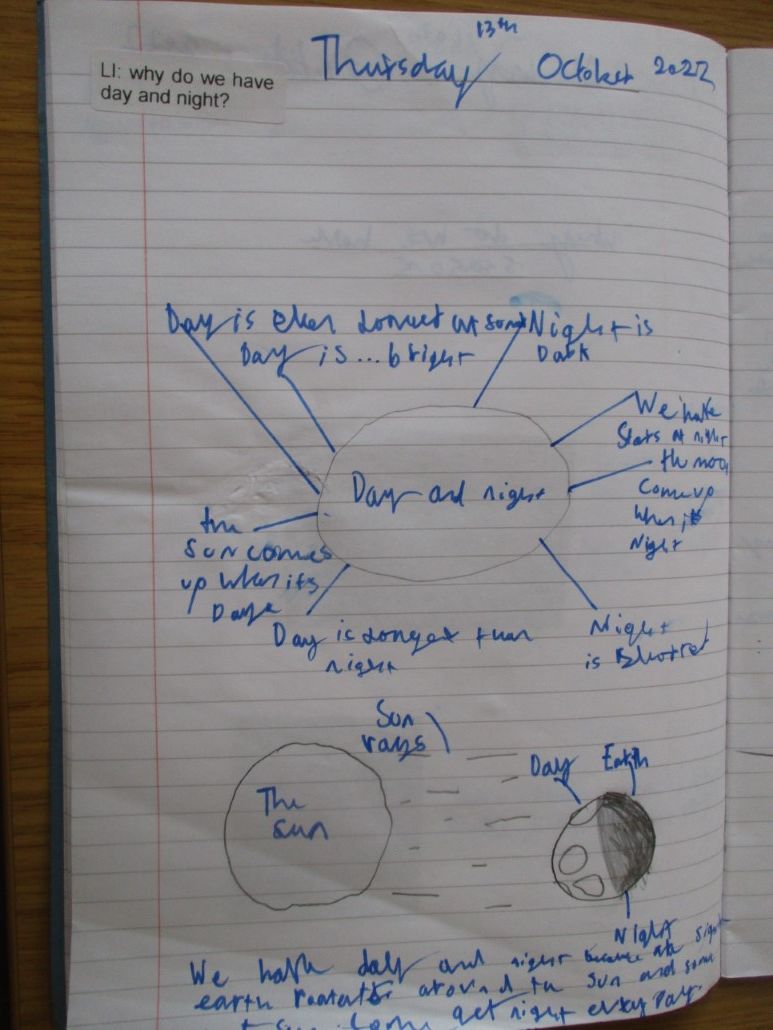 LI: why do we have
day and night?
Thursday 13th October 2022
Day is
Day is... bright
Night is
Dark
We have
Stars at night
the moon
Come up
when it
Night
Day and night
the
sun comes
up when its
Day
Day is Longer than
night
Night
is Shorter
Sun
rays
The
sun
Day
Earth
Night
We have day and night because
earth around the Sun and some
get night every Day.